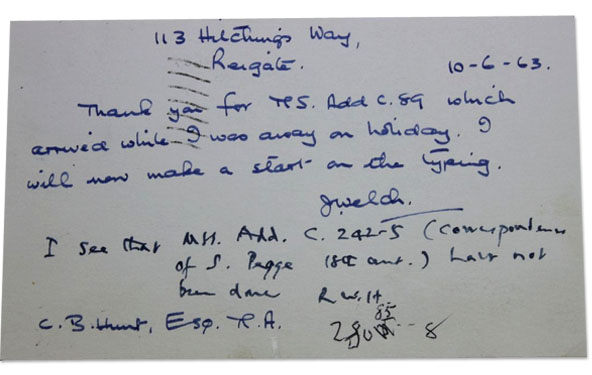 113 Hitchings Way,
Reigate.
10-6-63.
Thank you for MS. Add C. 89 which
arrived while I was away on holiday. I
will now make a start on the typing.
JWelch.
I see that MSS. Add. C. 242-5 (correspondence
of S. Pegge 18th cent.) have not
been done R.W.H.
C. B. Hunt, Esq.
85
8